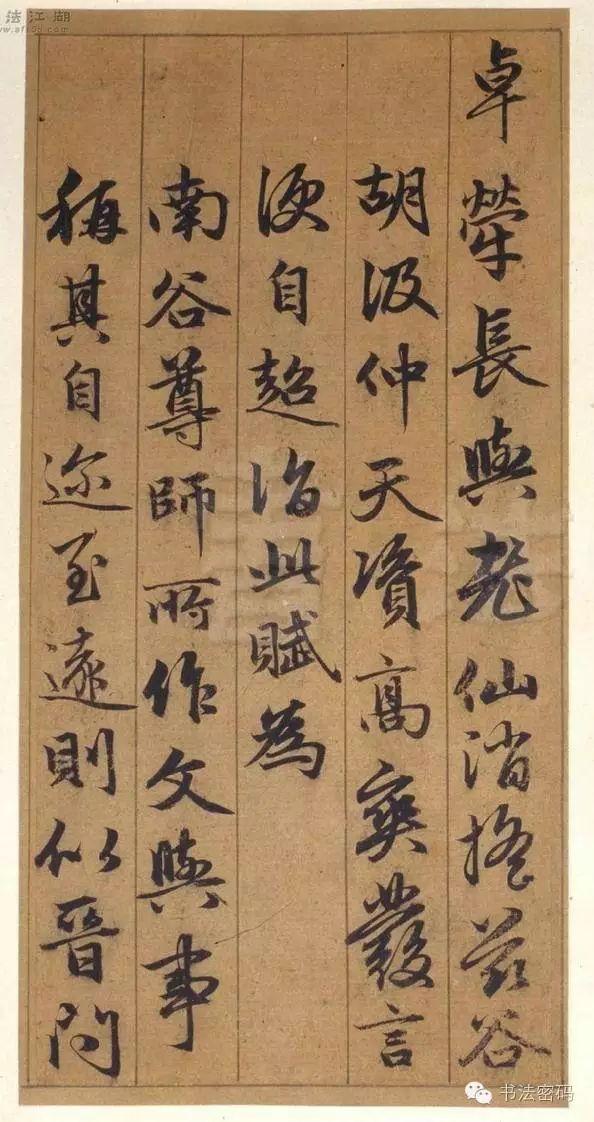 法江湖
卓犖長與老仙消搖茲谷
胡汲仲天資高爽發言
便自超詣此賦為
南谷尊師所作文與事
稱其自迩至遠則似晉問
书法密码